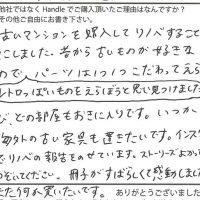 他社ではなく Handle でご購入頂いたご理由はなんですか？
その他ご自由にお書き下さい。
古いマンションを購入してリノベすること
こしました。昔から古いものが好きな
ので、パーツは1つ1つこだわってえら
トロっぽいものをえらぼうと思い見つけました
、どの部屋もお気に入りです。いつか
外の古い家具も置きたいです。インスタ
でリノベの報告ものせています。ストーリーズよかっ
てください。冊子がすばらしくて感動しました
また何か買いたいです。 ありがとうございました